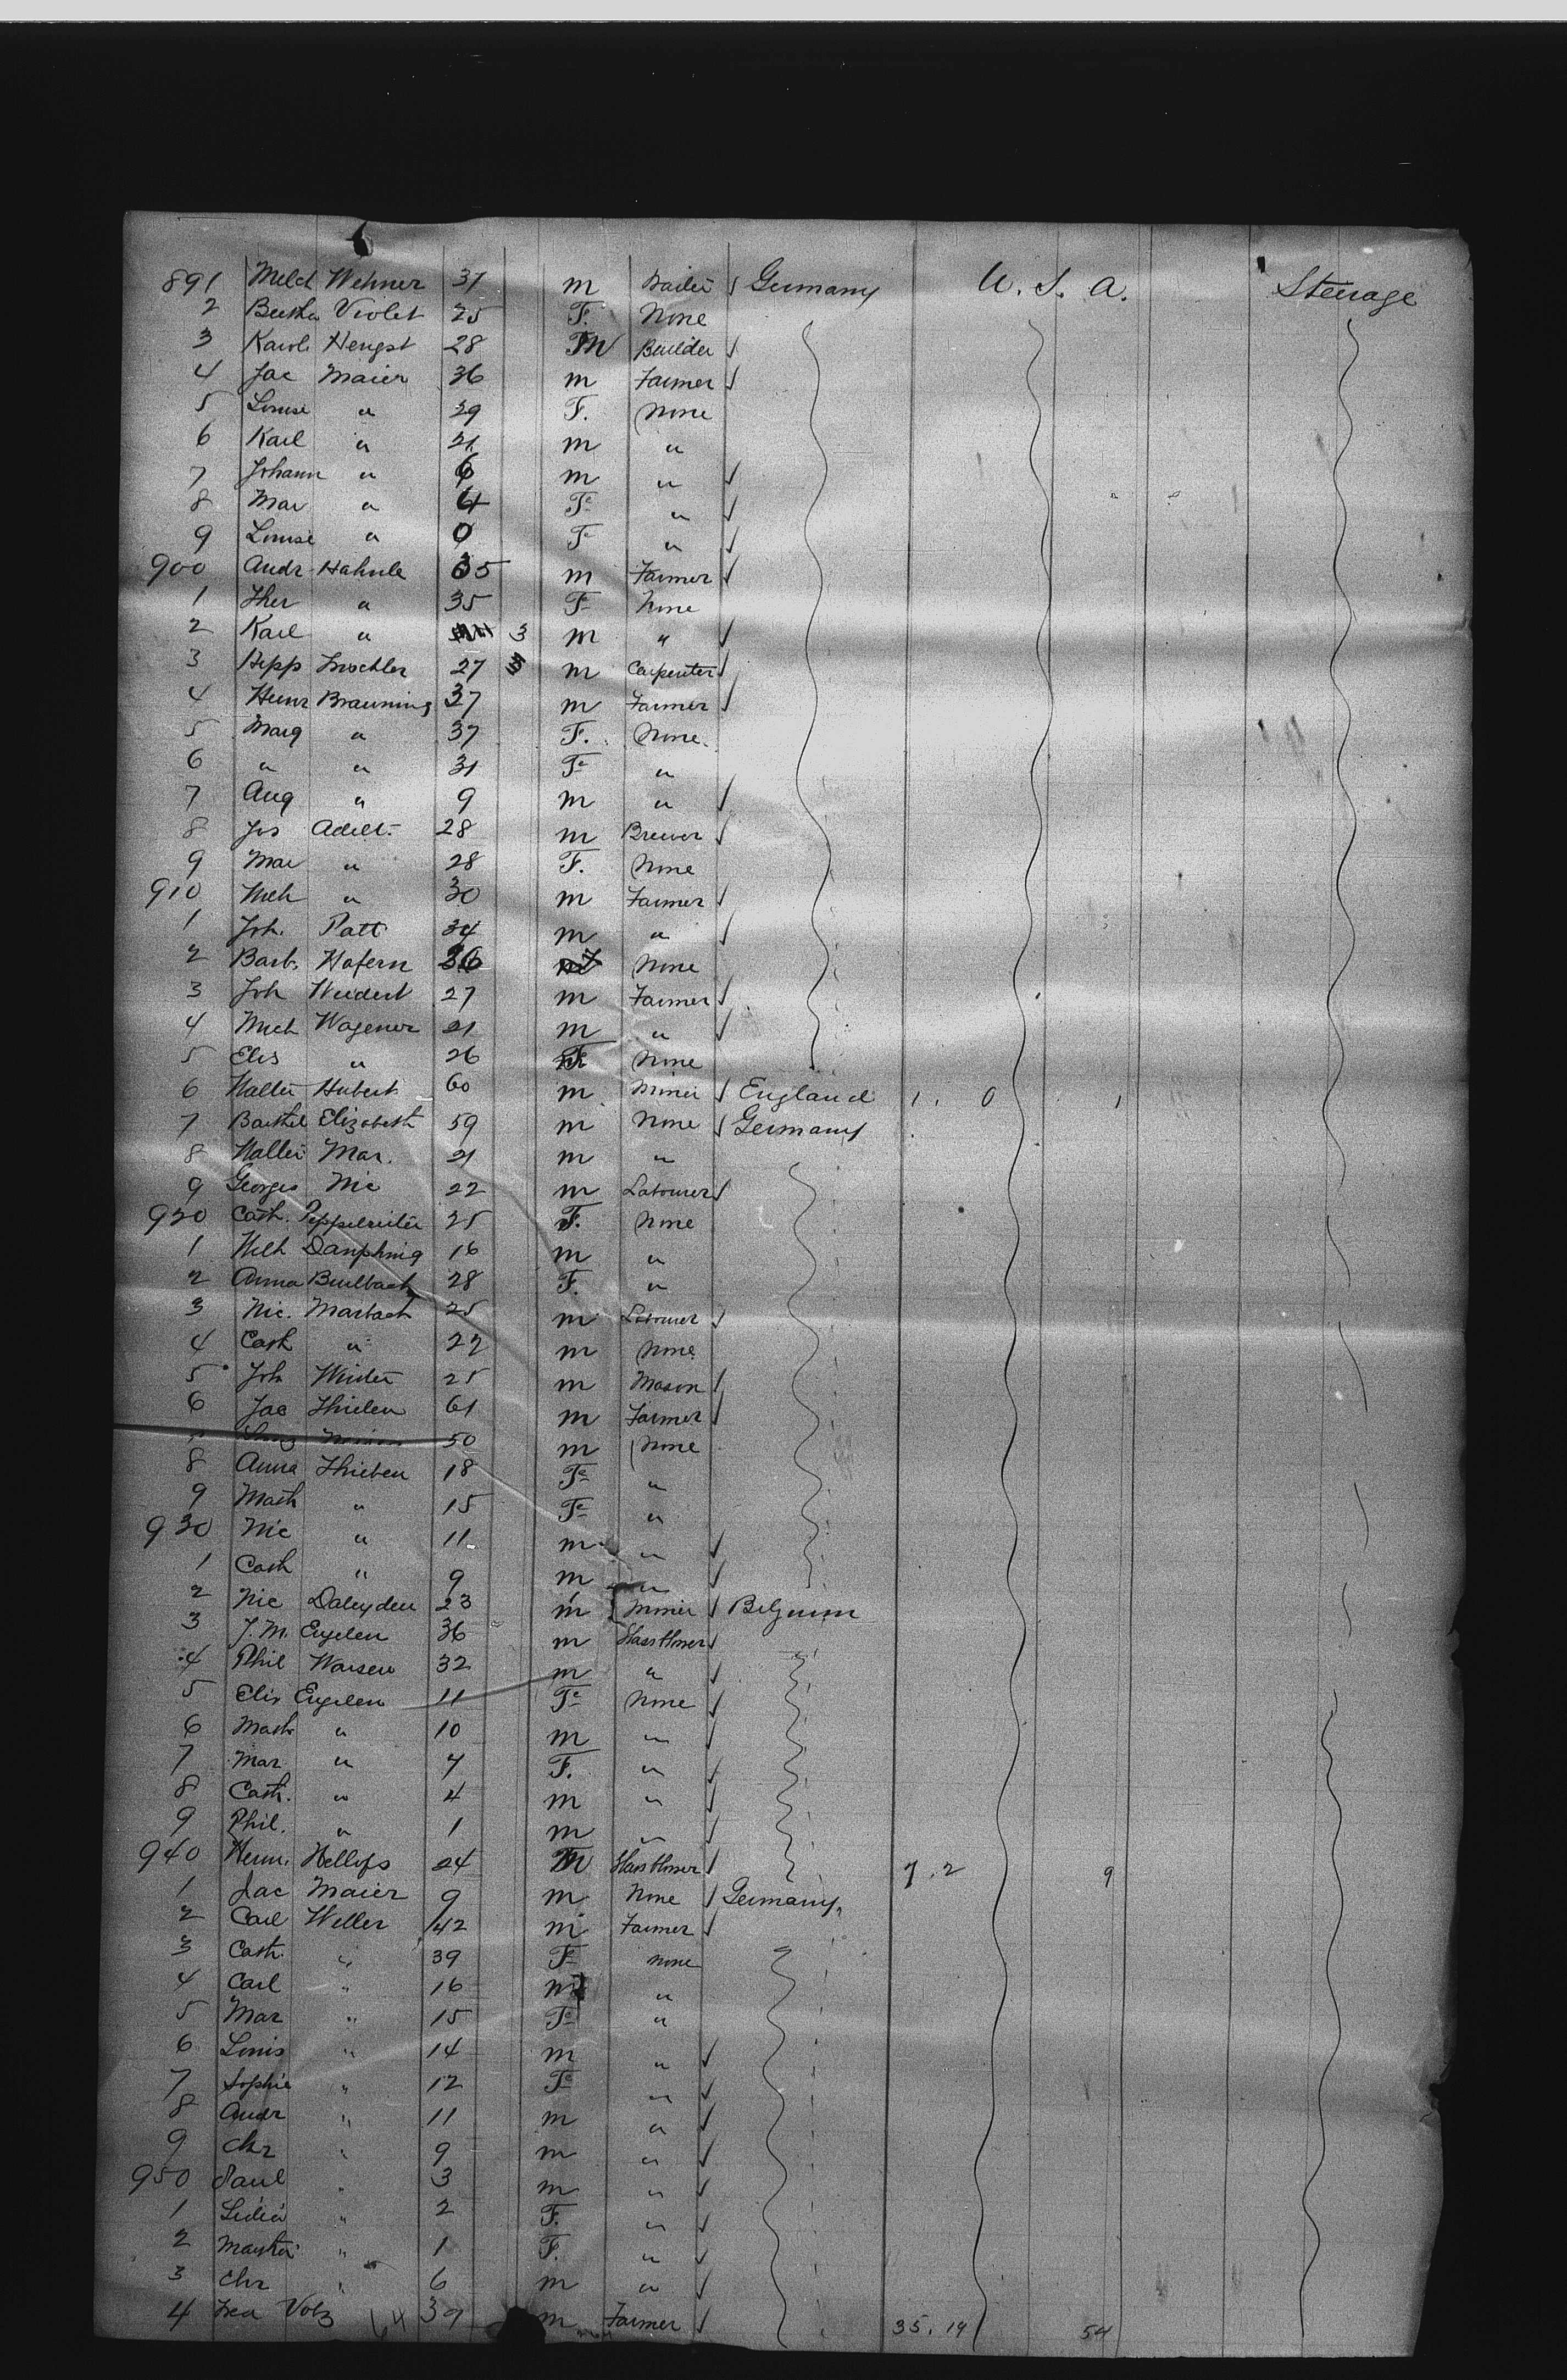 891 Melch Wehner 31 m ✓ Germany U. S. A. Steerage
2 Bertha Violet 25 F. None
3 Karol. Hengst 28 M Builder ✓
4 Jac Maier 36 m Farmer ✓
5 Louise " 29 F. None
6 Karl " m "
7 Johann " 6 m " ✓
8 Mar " 4 Fe " ✓
9 Louise " 0 Fe " ✓
900 Andr Hahnle 35 m Farmer ✓
1 Ther " 35 Fe None
2 Karl " 3 m " ✓
3 27 m Carpenter ✓
4 Heinr Brauning 37 m Farmer ✓
5 Marg " 37 F. None.
6 " " 31 Fe "
7 Aug " 9 m " ✓
8 Jos Adelt. 28 m Brewer ✓
9 Mar " 28 F. None
910 Mch " 30 m Farmer ✓
1 Joh. Patt 34 m " ✓
2 Barb. Hofern 36 f None
3 Joh Weidert 27 m Farmer ✓
4 Mich Wagener 21 m " ✓
5 Elis " 26 F None
6 Walter Hubert 60 m Miner ✓ England 1. 0 1
7 Barthel Elizabeth 59 m None ✓ Germany
8 Mar. 21 m "
9 Georges Nic 22 m Labourer ✓
920 Cath. Peppelreiter 25 F. None
1 Wilh Dauphing 16 m "
2 Anna 28 F. "
3 Nic. Marbach 25 m Labourer ✓
4 Cath " 22 m None
5 Joh Winter 25 m Mason ✓
6 Jac Thielen 61 m Farmer ✓
50 m None
8 Anna Thielen 18 Fe "
9 Math " 15 Fe "
930 Nic " 11 m " ✓
1 Cath " 9 m " ✓
2 Nic Daleyden 23 m Miner ✓ Belgium
3 J. M. Engelen 36 m ✓
4 Phil 32 m " ✓
5 Elis Engelen 11 Fe None ✓
6 Math " 10 m " ✓
7 Mar " 7 F. " ✓
8 Cath. " 4 m " ✓
9 Phil. " 1 m " ✓
940 Herm. 24 M ✓ 7.2 9
1 Jac Maier 9 m None ✓ Germany
2 Carl Weller 42 m Farmer ✓
3 Cath. " 39 Fe none
4 Carl " 16 m "
5 Mar " 15 Fe "
6 Louis " 14 m " ✓
7 Sophie " 12 Fe " ✓
8 Andr " 11 m " ✓
9 Chr " 9 m " ✓
950 Paul " 3 m " ✓
1 Lidia " 2 F. " ✓
2 " 1 F. " ✓
3 Chr " 6 m " ✓
4 Volz 39 m Farmer ✓ 35.19 54